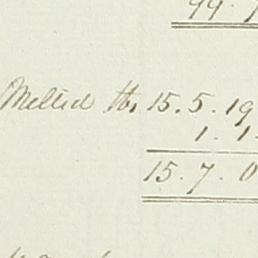 99.
Melted lb. 15.5.19
1.1
15.7.0